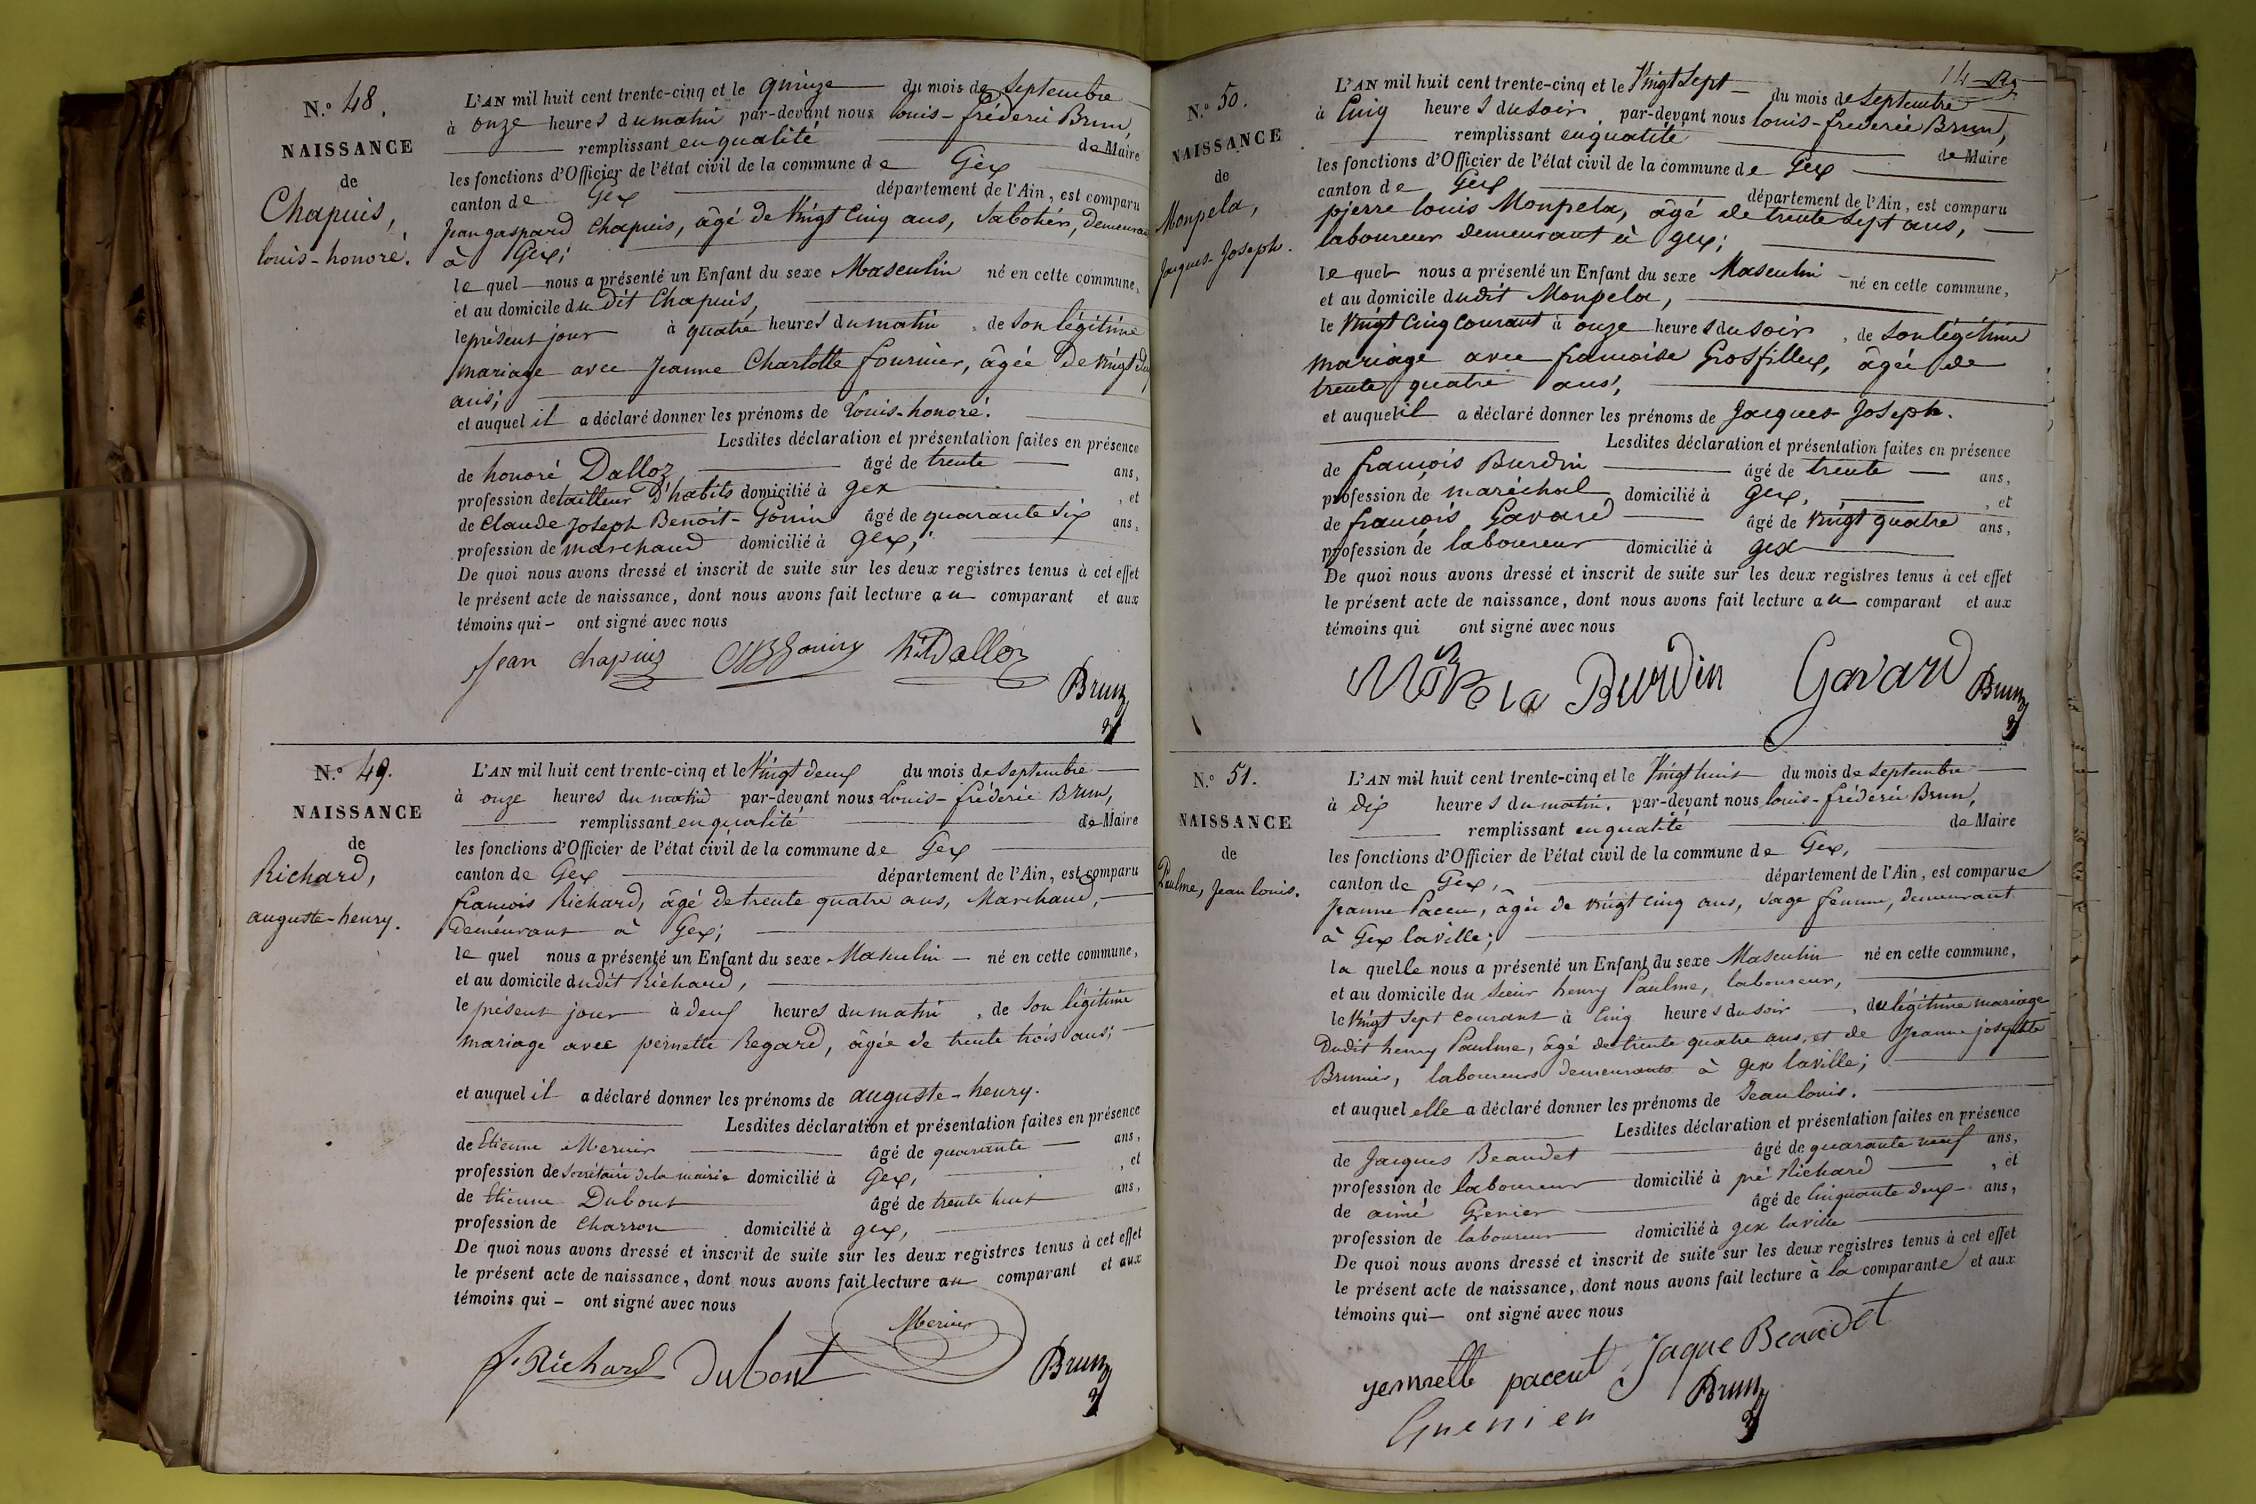 N.° 48.
NAISSANCE
de
Chapuis,
louis-honoré.
L'AN mil huit cent trente-cinq et le quinze du mois de Septembre
à onze heures du matin par-devant nous louis-fréderic Brun,
remplissant en qualité de Maire
les fonctions d'Officier de l'état civil de la commune de Gex
canton de Gex département de l'Ain, est comparu
Jean gaspard Chapuis, âgé de Vingt Cinq ans, Sabotier, demeurant
à Gex;
le quel nous a présenté un Enfant du sexe Masculin né en cette commune,
et au domicile du dit Chapuis,
le présent jour à quatre heures du matin, de Son légitime
mariage avec Jeanne Charlotte fournier, âgée de Vingt
ans;
et auquel il a déclaré donner les prénoms de Louis-honoré.
Lesdites déclaration et présentation faites en présence
de honoré Dalloz âgé de trente ans,
profession de tailleur d'habits domicilié à gex, et
de Claude Joseph Benoit-Gonin âgé de quarante Six ans,
profession de marchand domicilié à gex;
De quoi nous avons dressé et inscrit de suite sur les deux registres tenus à cet effet
le présent acte de naissance, dont nous avons fait lecture au comparant et aux
témoins qui - ont signé avec nous
Jean chapuis CJBGonin hré Dalloz
Brun
N.° 49.
NAISSANCE
de
Richard,
auguste-henry.
L'AN mil huit cent trente-cinq et le Vingt deux du mois de Septembre
à onze heures du matin par-devant nous Louis-fréderic Brun,
remplissant en qualité de Maire
les fonctions d'Officier de l'état civil de la commune de Gex
canton de Gex département de l'Ain, est comparu
francois Richard, âgé de trente quatre ans, Marchand,
demeurant à Gex;
le quel nous a présenté un Enfant du sexe Masculin - né en cette commune,
et au domicile dudit Richard,
le présent jour à deux heures du matin, de Son légitime
mariage avec pernette Regard, âgée de trente trois ans;
et auquel il a déclaré donner les prénoms de auguste-henry.
Lesdites déclaration et présentation faites en présence
de Etienne Mernier âgé de quarante ans,
profession de Secrétaire de la mairie domicilié à Gex, et
de Etienne Dubout âgé de trente huit ans,
profession de Charron domicilié à gex,
De quoi nous avons dressé et inscrit de suite sur les deux registres tenus à cet effet
le présent acte de naissance, dont nous avons fait lecture au comparant et aux
témoins qui - ont signé avec nous
f. Richard Dubout Mernier
Brun
14
N.° 50.
NAISSANCE
de
Monpela,
Jacques-Joseph.
L'AN mil huit cent trente-cinq et le Vingt Sept du mois de Septembre
à Cinq heures du soir, par-devant nous louis-frederic Brun,
remplissant en qualité de Maire
les fonctions d'Officier de l'état civil de la commune de Gex
canton de Gex département de l'Ain, est comparu
pierre louis Monpela, âgé de trente Sept ans,
laboureur demeurant à gex;
le quel nous a présenté un Enfant du sexe Masculin - né en cette commune,
et au domicile dudit Monpela,
le Vingt Cinq Courant à onze heures du soir, de Son légitime
mariage avec francoise Grosfillex, âgée de
trente quatre ans;
et auquel il a déclaré donner les prénoms de Jacques-Joseph.
Lesdites déclaration et présentation faites en présence
de françois Burdin âgé de trente ans,
profession de maréchal domicilié à gex, et
de françois Gavard âgé de Vingt quatre ans,
profession de laboureur domicilié à gex
De quoi nous avons dressé et inscrit de suite sur les deux registres tenus à cet effet
le présent acte de naissance, dont nous avons fait lecture au comparant et aux
témoins qui ont signé avec nous
Burdin Gavard Brun
N.° 51.
NAISSANCE
de
Paulme, Jean louis.
L'AN mil huit cent trente-cinq et le Vingt huit du mois de Septembre
à dix heures du matin, par-devant nous louis-fréderic Brun,
remplissant en qualité de Maire
les fonctions d'Officier de l'état civil de la commune de Gex,
canton de Gex, département de l'Ain, est comparue
Jeanne Paccu, âgée de Vingt Cinq ans, Sage femme, demeurant
à Gex la ville;
la quelle nous a présenté un Enfant du sexe Masculin né en cette commune,
et au domicile du Sieur henry Paulme, laboureur,
le Vingt Sept Courant à Cinq heures du soir, du légitime mariage
Dudit henry Paulme, âgé de trente quatre ans, et de Jeanne josephte
Brunier, laboureurs demeurants à gex la ville;
et auquel elle a déclaré donner les prénoms de Jean louis.
Lesdites déclaration et présentation faites en présence
de Jacques Beaudet âgé de quarante neuf ans,
profession de laboureur domicilié à pré Richard, et
de aimé Grenier âgé de Cinquante deux ans,
profession de laboureur domicilié à gex la ville
De quoi nous avons dressé et inscrit de suite sur les deux registres tenus à cet effet
le présent acte de naissance, dont nous avons fait lecture à la comparante et aux
témoins qui - ont signé avec nous
yennette paccut Jaque Beaudet
Grenier Brun